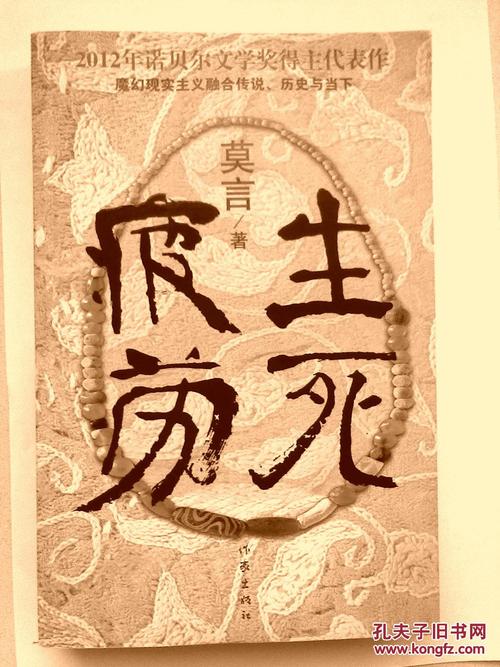 2012年诺贝尔文学奖得主代表作
魔幻现实主义融合传说、历史与当下
莫言/著
生死
疲劳
作家出版社
孔夫子旧书网
www.kongfz.com